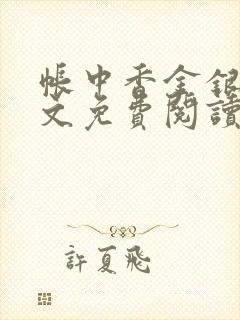 帳中香金銀
文免費閱讀
許夏飛